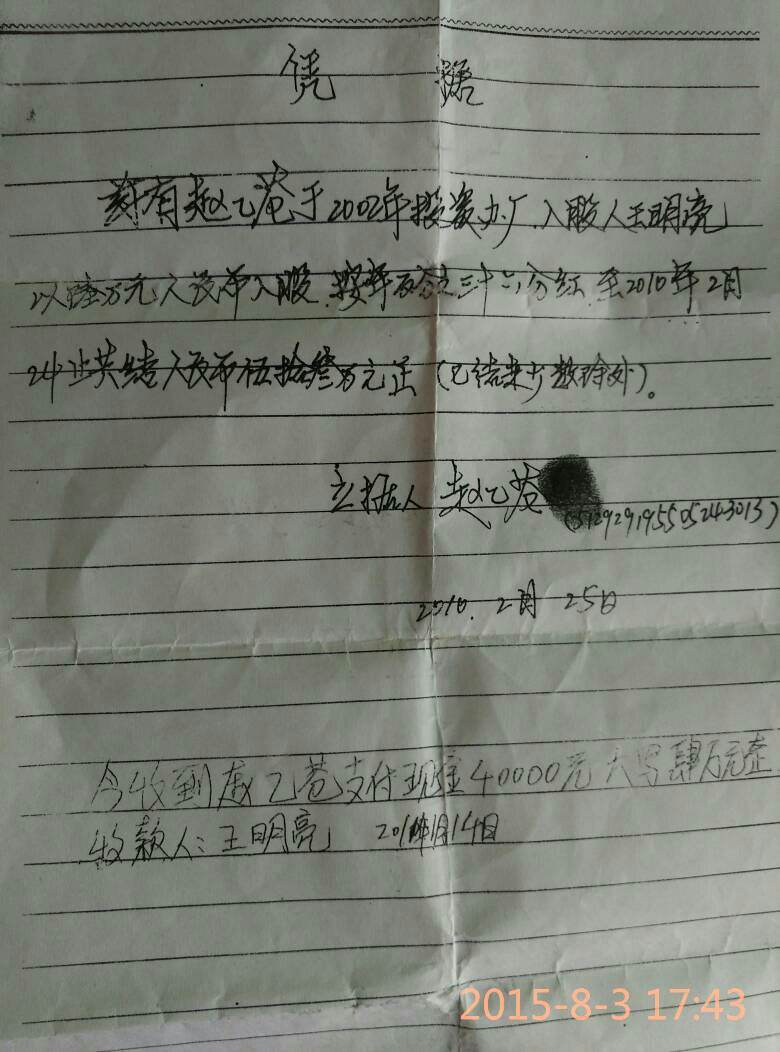 凭 据
兹有赵乙苍于2002年投资办厂.入股人王明亮
以 万元人民币入股.按年百分之三十六分红.至2010年2月
24止共结人民币伍拾叁万元正(已结来少数除外)。
立据人 赵乙苍
(512929195505243013)
2010.2月25日
今收到赵乙苍支付现金40000元 大写肆万元整
收款人:王明亮 201 年1月14日
2015-8-3 17:43